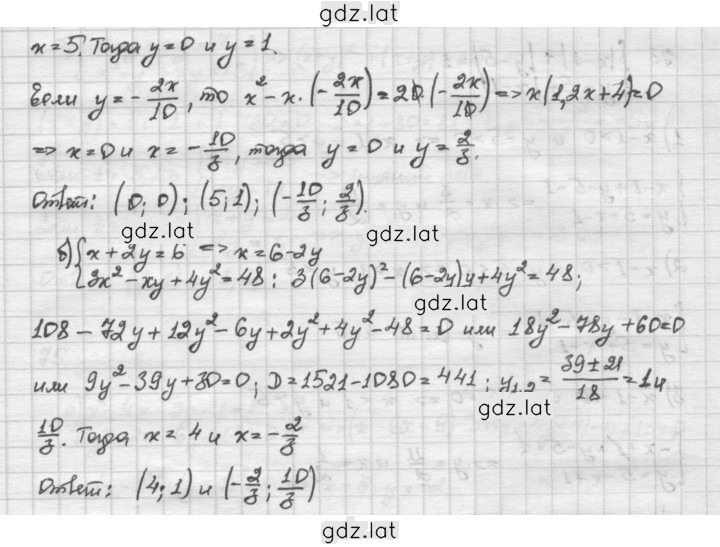 gdz.lat
x = 5. Тогда y = 0 и y = 1.
Если y = -2x/10, то x² - x · (-2x/10) = 20 · (-2x/10) => x(1,2x+4) = 0
=> x = 0 и x = -10/3, тогда y = 0 и y = 2/3.
Ответ: (0; 0); (5; 1); (-10/3; 2/3).
gdz.lat gdz.lat
б) {x + 2y = 6 => x = 6-2y
{3x² - xy + 4y² = 48 : 3(6-2y)² - (6-2y)y + 4y² = 48;
gdz.lat
108 - 72y + 12y² - 6y + 2y² + 4y² - 48 = 0 или 18y² - 78y + 60 = 0
или 9y² - 39y + 30 = 0; D = 1521 - 1080 = 441; y1,2 = (39 ± 21)/18 = 1 и
gdz.lat
10/3. Тогда x = 4 и x = -2/3
Ответ: (4; 1) и (-2/3; 10/3)
gdz.lat